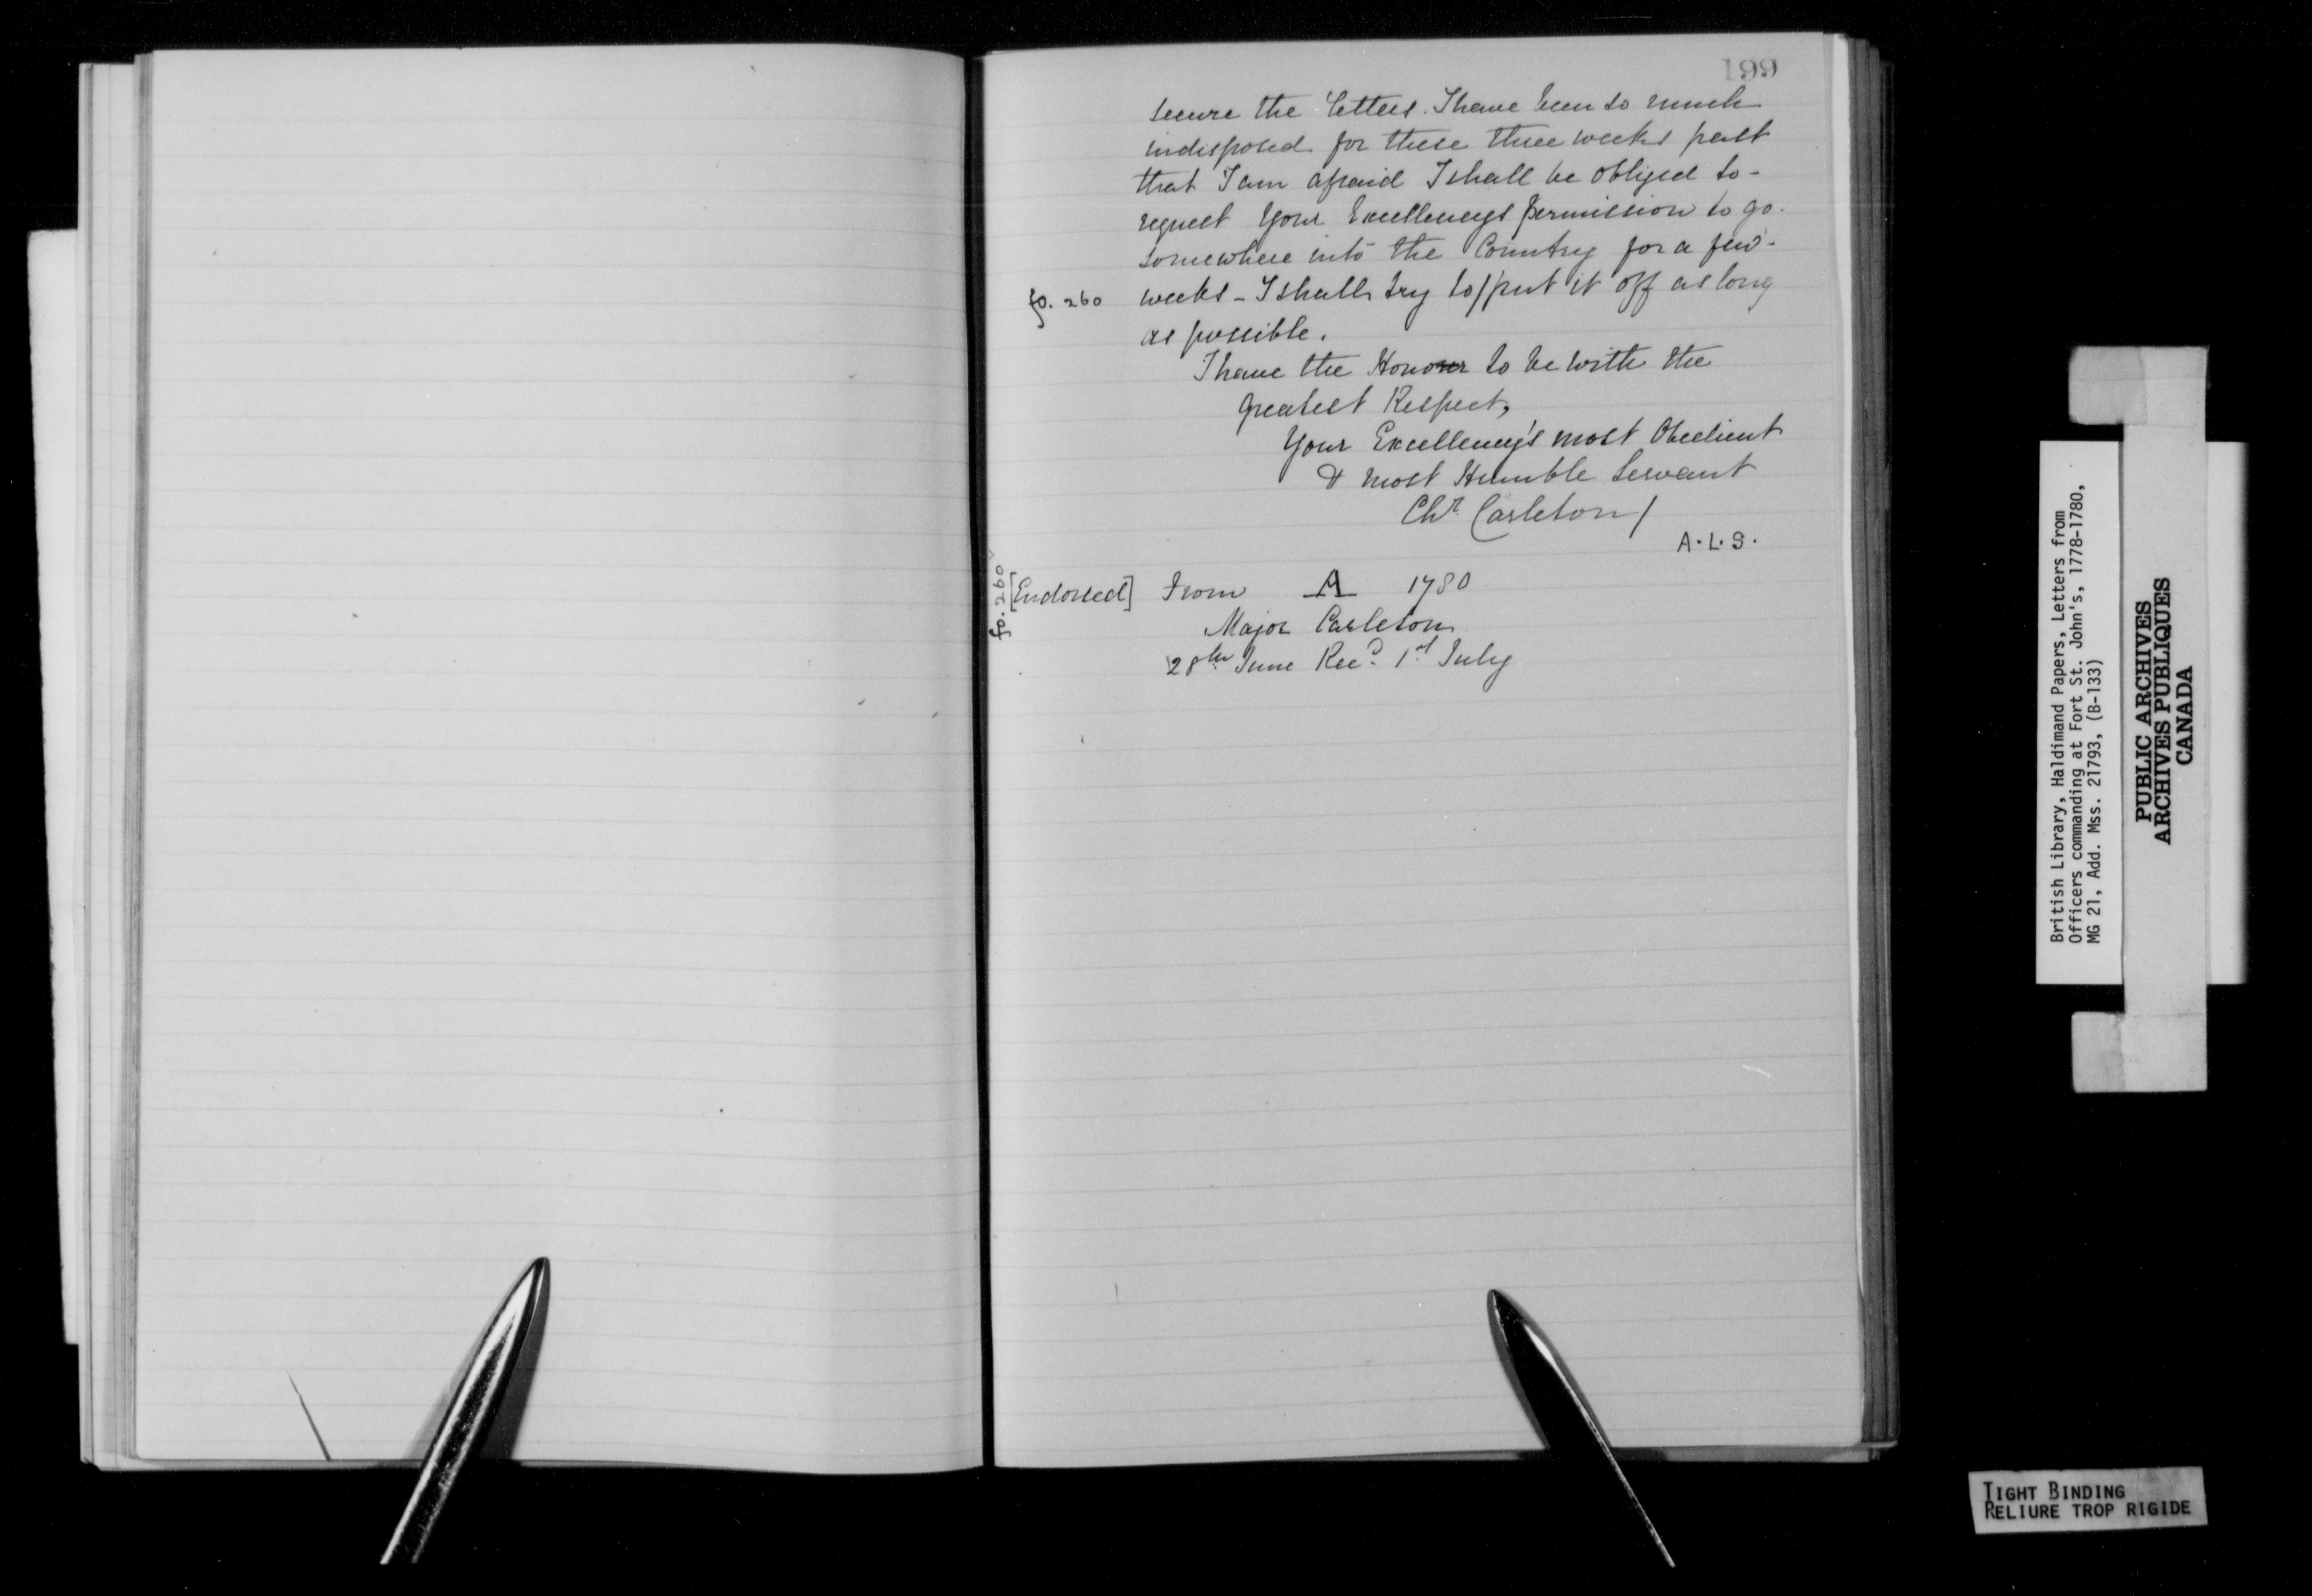 199
secure the letters. I have been so much
indisposed for these three weeks past
that I am afraid I shall be obliged to-
request your Excellencys permission to go.
somewhere into the Country for a few-
fo. 260 weeks - I shall try to//put it off as long
as possible.
I have the Honour to be with the
greatest Respect,
Your Excellency's most Obedient
& most Humble Servant
Chr Carleton/
A.L.S.
fo. 260
[Endorsed] From A 1780
Major Carleton
28th June Recd. 1st July
British Library, Haldimand Papers, Letters from
Officers commanding at Fort St. John's, 1778-1780,
MG 21, Add. Mss. 21793, (B-133)
PUBLIC ARCHIVES
ARCHIVES PUBLIQUES
CANADA
TIGHT BINDING
RELIURE TROP RIGIDE